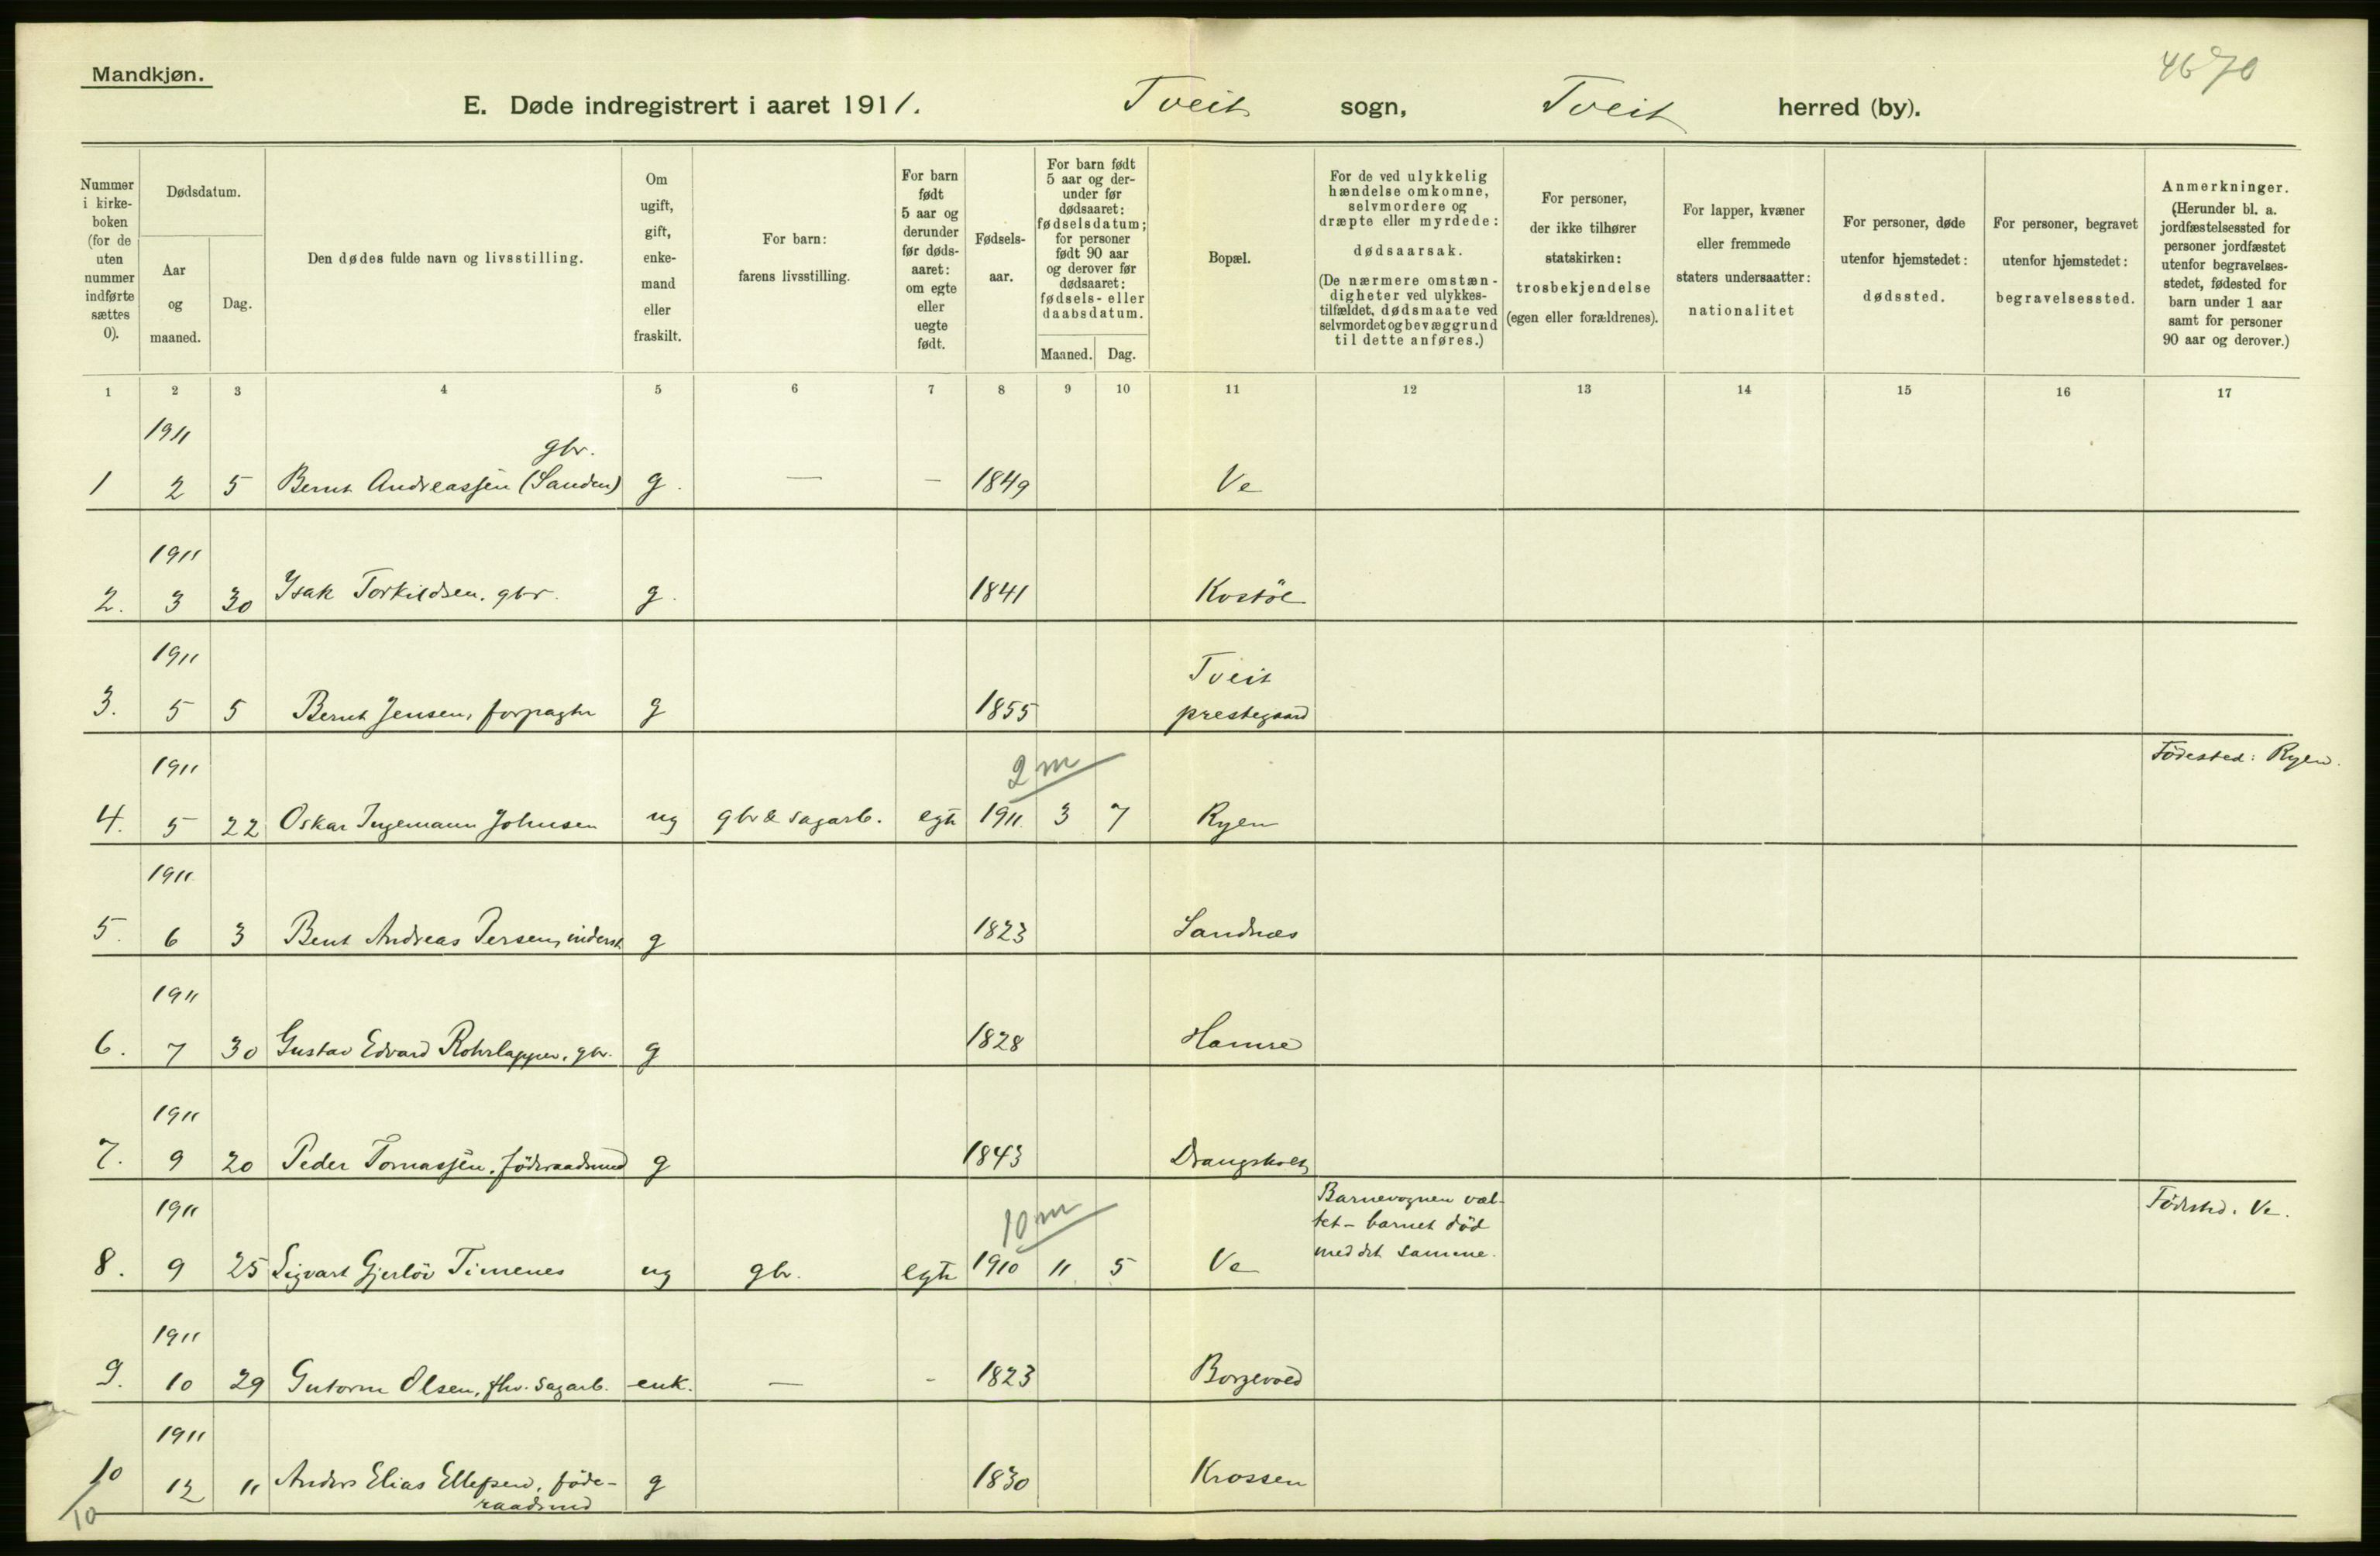 Mandkjøn.
4670
E. Døde indregistrert i aaret 1911. Tveit sogn, Tveit herred (by).
Nummer i kirke-boken (for de uten nummer indførte sættes 0).
Dødsdatum.
Aar og maaned.
Dag.
Den dødes fulde navn og livsstilling.
Om ugift, gift, enke-mand eller fraskilt.
For barn: farens livsstilling.
For barn født 5 aar og derunder før døds-aaret: om egte eller uegte født.
Fødsels-aar.
For barn født 5 aar og der-under før dødsaaret: fødselsdatum; for personer født 90 aar og derover før dødsaaret: fødsels- eller daabsdatum.
Maaned. Dag.
Bopæl.
For de ved ulykkelig hændelse omkomne, selvmordere og dræpte eller myrdede: dødsaarsak. (De nærmere omstæn-digheter ved ulykkes-tilfældet, dødsmaate ved selvmordet og bevæggrund til dette anføres.)
For personer, der ikke tilhører statskirken: trosbekjendelse (egen eller forældrenes).
For lapper, kvæner eller fremmede staters undersaatter: nationalitet
For personer, døde utenfor hjemstedet: dødssted.
For personer, begravet utenfor hjemstedet: begravelsessted.
Anmerkninger. (Herunder bl. a. jordfæstelsessted for personer jordfæstet utenfor begravelses-stedet, fødested for barn under 1 aar samt for personer 90 aar og derover.)
1 2 3 4 5 6 7 8 9 10 11 12 13 14 15 16 17
1911
gbr.
1 2 5 Bernt Andreassen (Sanden) g. — – 1849 Ve
1911
2. 3 30 Isak Torkildsen. gbr. g. 1841 Kostöl
1911
Tveit
3. 5 5 Bernt Jensen, forpagter g 1855 prestegaard
1911 2 m Födested: Ryen.
4. 5 22 Oskar Ingemann Johnsen ug gbr & sagarb. egte 1911. 3 7 Ryen
1911
5. 6 3 Bent Andreas Persen, inderst. g 1823 Sandnæs
1911
6. 7 30 Gustav Edvard Rohrlapper, gbr. g 1828 Hamre
1911
7. 9 20 Peder Tomassen. föderaadsmd g 1843 Drangsholt
1911 10 m Barnevognen væl-
tet – barnet död
med det samme. Födested. Ve.
8. 9 25 Sigvart Gjerlöv Timenes ug gbr. egte 1910 11 5 Ve
1911
9. 10 29 Gutorm Olsen, fhv. sagarb. enk. — – 1823 Borgevold
1911
10 12 11 Anders Elias Ellefsen, föde- g 1830 Krossen
raadsmd
10